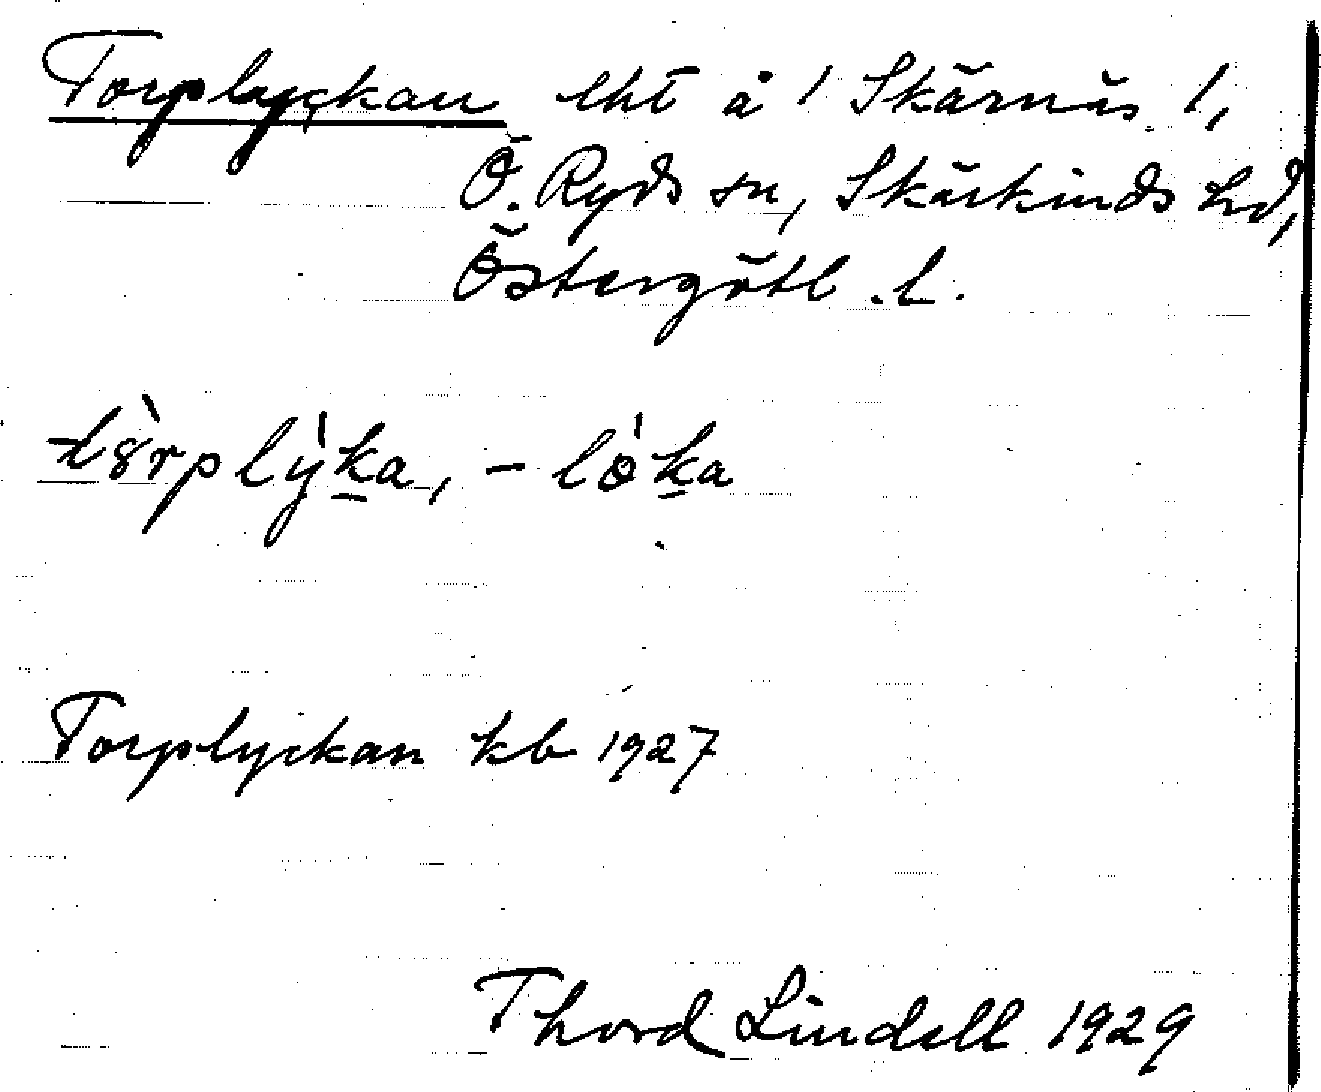 Torplyckan lht å 1 Skärnäs 1,
Ö. Ryds sn, Skärkinds hd,
Östergötl. l.
tȣ̀rplỳk̲a, - lò̵k̲a
Torplyckan kb 1927
Thord Lindell 1929